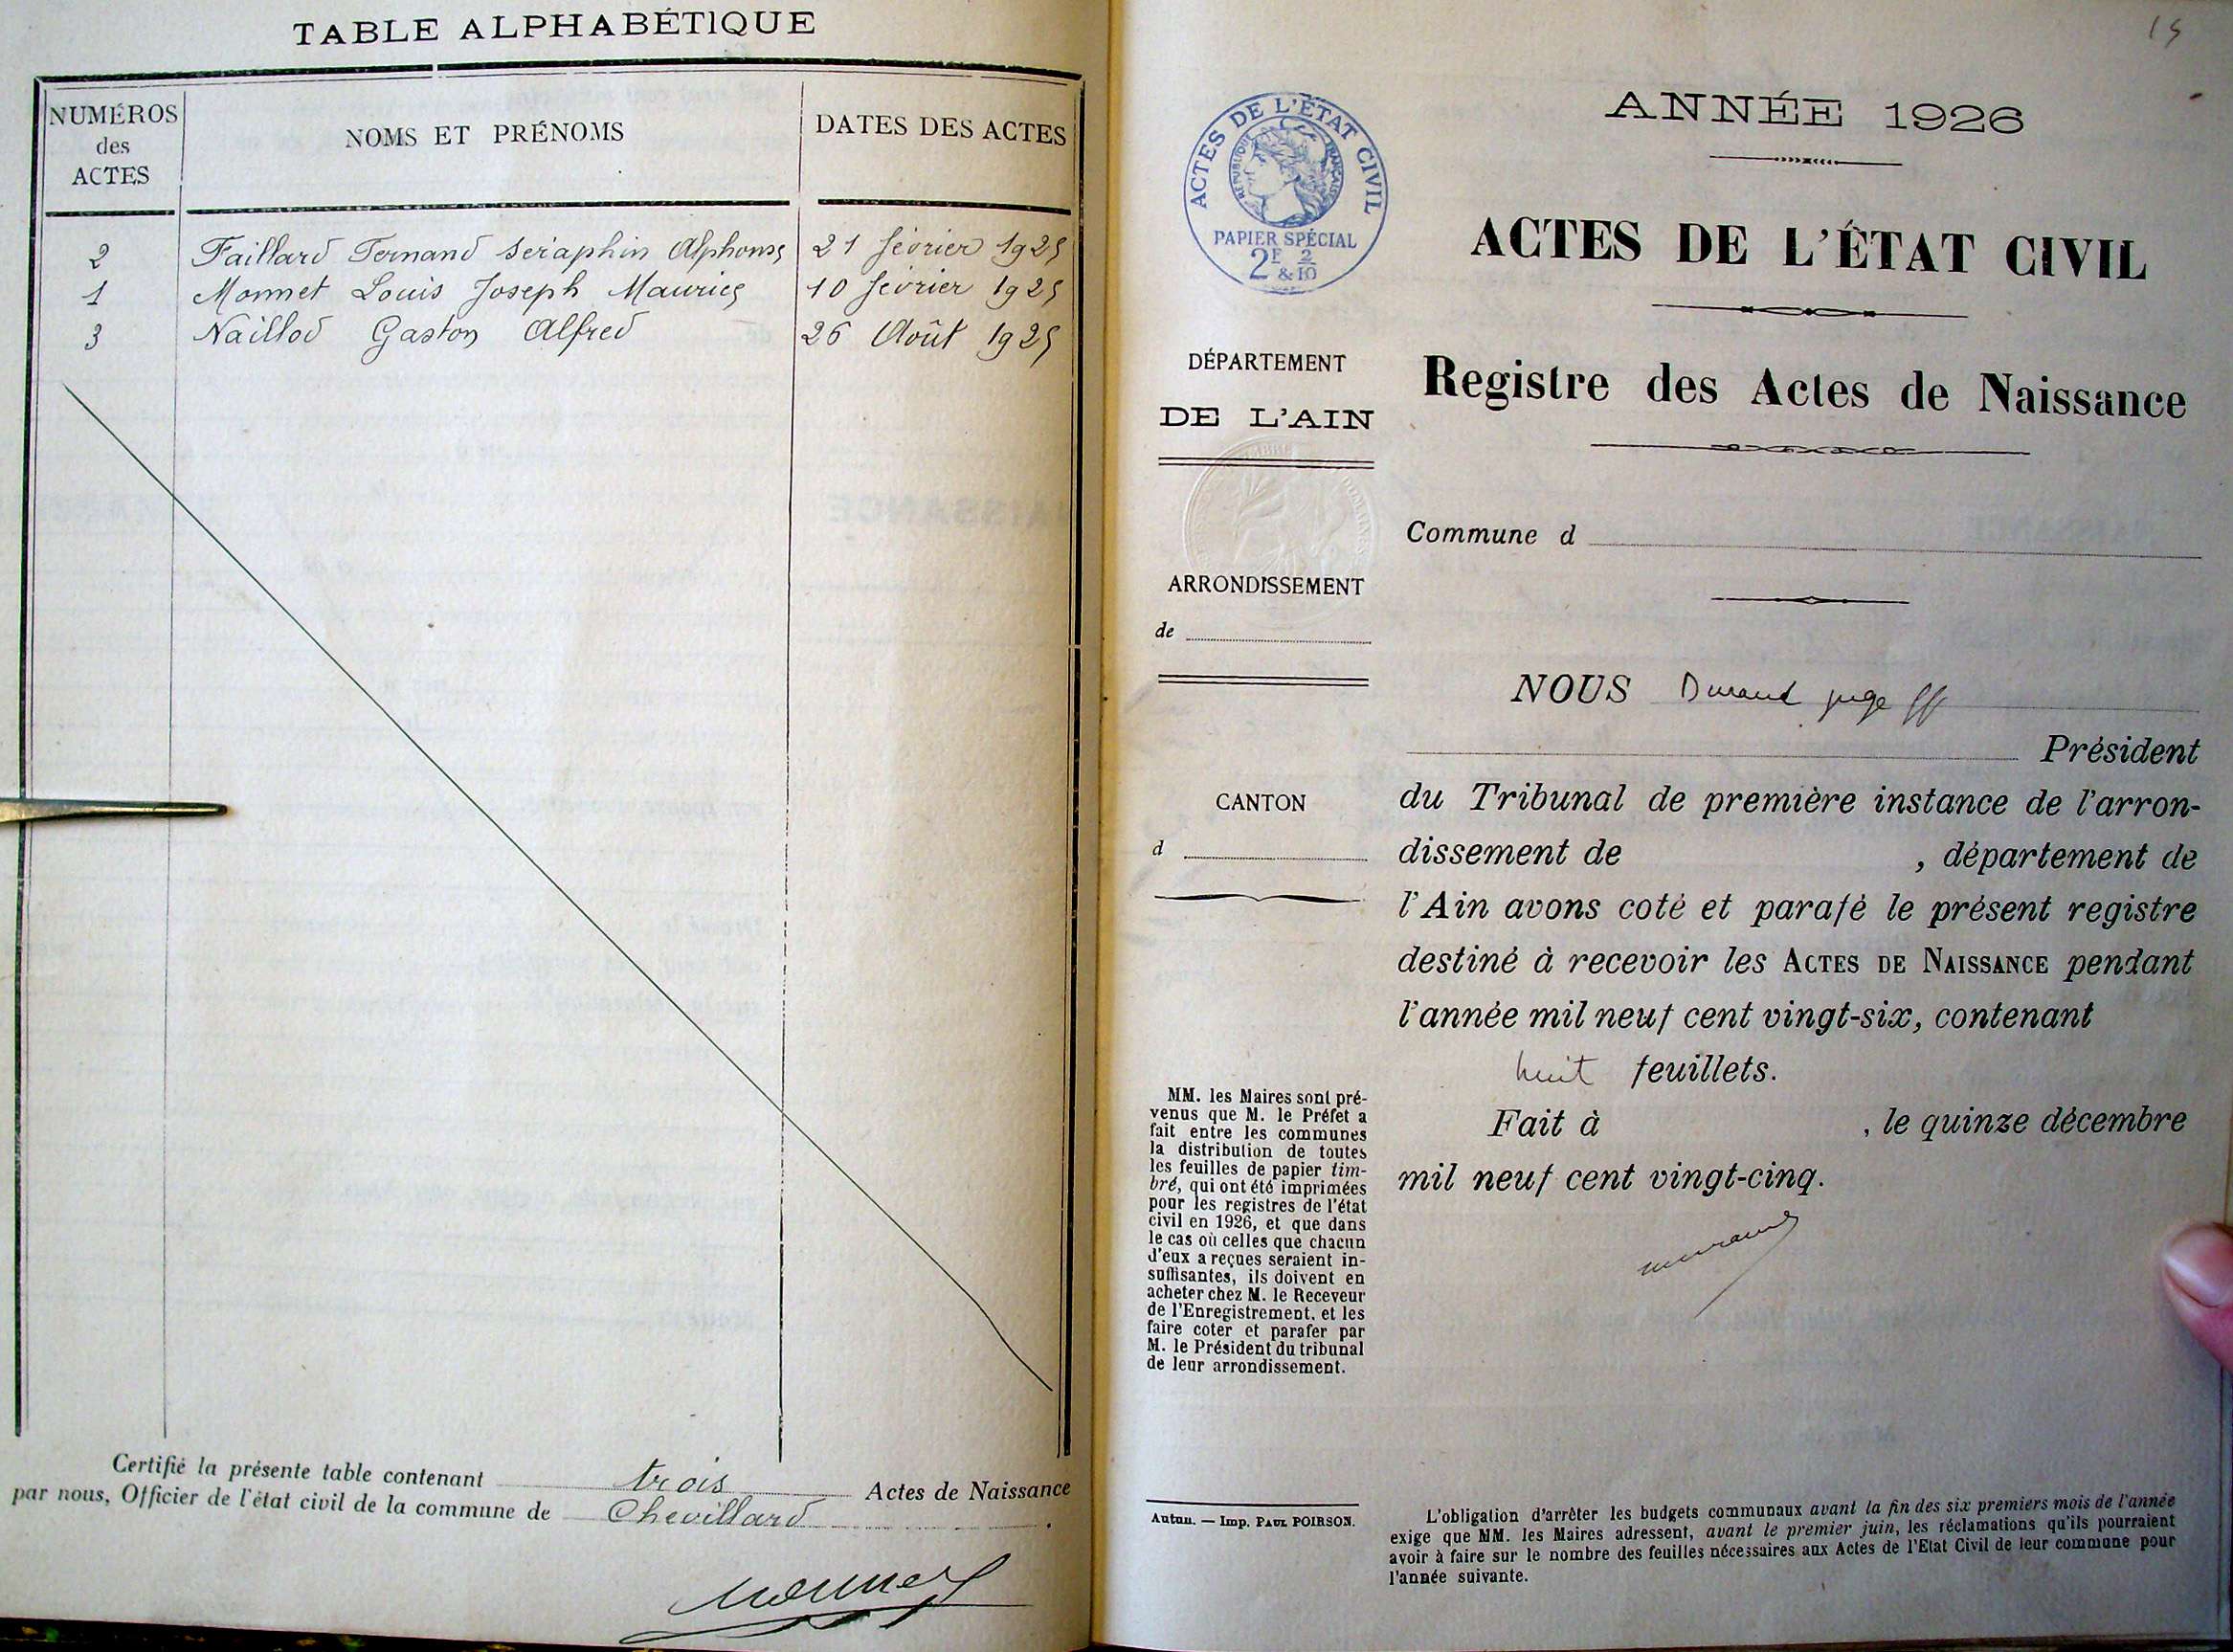 TABLE ALPHABÉTIQUE
NUMÉROS
des
ACTES
NOMS ET PRÉNOMS
DATES DES ACTES
2 Faillard Fernand Seraphin Alphonse 21 février 1925
1 Monnet Louis Joseph Maurice 10 février 1925
3 Naillod Gaston Alfred 26 Août 1925
Certifié la présente table contenant trois Actes de Naissance
par nous, Officier de l'état civil de la commune de Chevillard.
15
ACTES DE L'ÉTAT CIVIL
RÉPUBLIQUE FRANÇAISE
PAPIER SPÉCIAL
2F 2
& 10
ANNÉE 1926
ACTES DE L'ÉTAT CIVIL
Registre des Actes de Naissance
DÉPARTEMENT
DE L'AIN
Commune d
ARRONDISSEMENT
de
CANTON
d
NOUS Durand juge ff
Président
du Tribunal de première instance de l'arron-
dissement de , département de
l'Ain avons coté et parafé le présent registre
destiné à recevoir les ACTES DE NAISSANCE pendant
l'année mil neuf cent vingt-six, contenant
huit feuillets.
Fait à , le quinze décembre
mil neuf cent vingt-cinq.
MM. les Maires sont pré-
venus que M. le Préfet a
fait entre les communes
la distribution de toutes
les feuilles de papier tim-
bré, qui ont été imprimées
pour les registres de l'état
civil en 1926, et que dans
le cas où celles que chacun
d'eux a reçues seraient in-
suffisantes, ils doivent en
acheter chez M. le Receveur
de l'Enregistrement, et les
faire coter et parafer par
M. le Président du tribunal
de leur arrondissement.
Autun. — Imp. PAUL POIRSON.
L'obligation d'arrêter les budgets communaux avant la fin des six premiers mois de l'année
exige que MM. les Maires adressent, avant le premier juin, les réclamations qu'ils pourraient
avoir à faire sur le nombre des feuilles nécessaires aux Actes de l'Etat Civil de leur commune pour
l'année suivante.